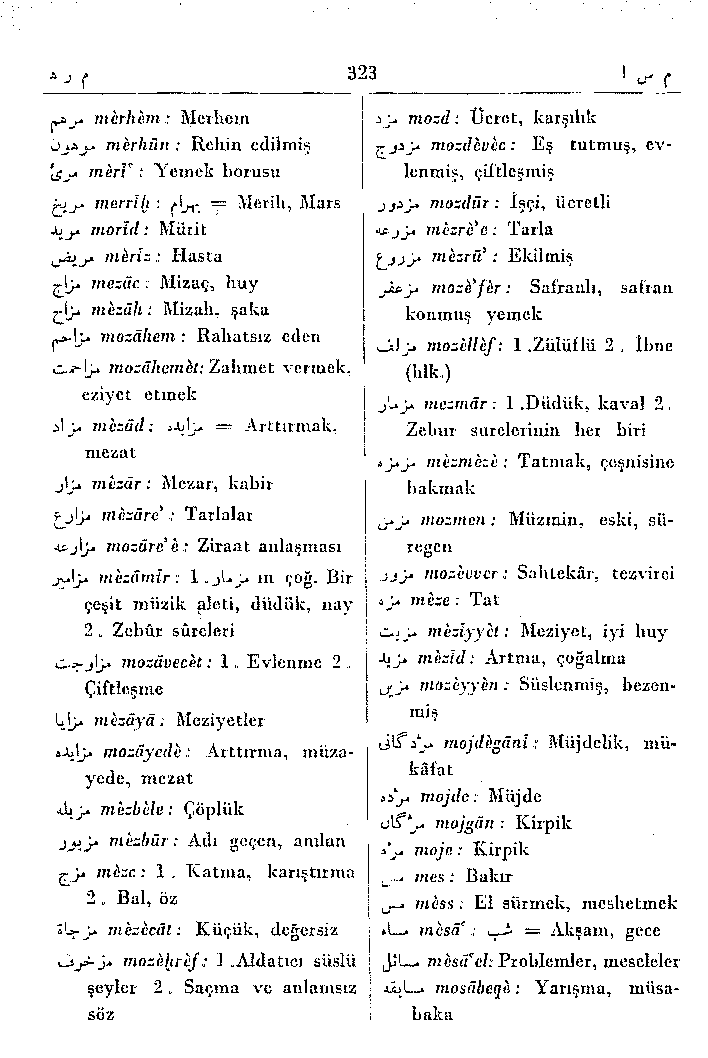 م ر ه
323
م س ا
مرهم mèrhèm : Merhem
مرهون mèrhūn : Rehin edilmiş
مرئ mèrī' : Yemek borusu
مريخ merrīḫ : بهرام = Merih, Mars
مريد morīd : Mürit
مريض mèrīz : Hasta
مزاج mezāc : Mizaç, huy
مزاح mèzāh : Mizah, şaka
مزاحم mozāhem : Rahatsız eden
مزاحمت mozāhemèt: Zahmet vermek,
eziyet etmek
مزاد mèzād: مزايده = Arttırmak,
mezat
مزار mèzār : Mezar, kabir
مزارع mèzāre' : Tarlalar
مزارعه mozāre'è : Ziraat anlaşması
مزامير mèzāmīr : 1 .مزمار ın çoğ. Bir
çeşit müzik aleti, düdük, nay
2 . Zebûr sûreleri
مزاوجت mozāvecèt : 1 . Evlenme 2 .
Çiftleşme
مزايا mèzāyā : Meziyetler
مزايده mozāyedè : Arttırma, müza-
yede, mezat
مزبله mèzbèle : Çöplük
مزبور mèzbūr : Adı geçen, anılan
مزج mèzc : 1 . Katma, karıştırma
2 . Bal, öz
مزجاة mèzècāt : Küçük, değersiz
مزخرف mozèḫrèf : 1 .Aldatıcı süslü
şeyler 2 . Saçma ve anlamsız
söz
مزد mozd : Ücret, karşılık
مزدوج mozdèvèc : Eş tutmuş, ev-
lenmiş, çiftleşmiş
مزدور mozdūr : İşçi, ücretli
مزرعه mèzrè'e : Tarla
مزروع mèzrū' : Ekilmiş
مزعفر mozè'fèr : Safranlı, safran
konmuş yemek
مزلف mozèllèf : 1 .Zülüflü 2 . İbne
(hlk.)
مزمار mezmār : 1 .Düdük, kaval 2 .
Zebur surelerinin her biri
مزمزه mèzmèzè : Tatmak, çeşnisine
bakmak
مزمن mozmen : Müzmin, eski, sü-
regen
مزور mozèvver : Sahtekâr, tezvirci
مزه mèze : Tat
مزيت mèziyyèt : Meziyet, iyi huy
مزيد mèzīd : Artma, çoğalma
مزين mozèyyèn : Süslenmiş, bezen-
miş
مژدگانى mojdègānī : Müjdelik, mü-
kâfat
مژده mojde : Müjde
مژگان mojgān : Kirpik
مژه moje : Kirpik
مس mes : Bakır
مس mèss : El sürmek, meshetmek
مساء mèsā' : شب = Akşam, gece
مسائل mèsā'el: Problemler, meseleler
مسابقه mosābeqè : Yarışma, müsa-
baka